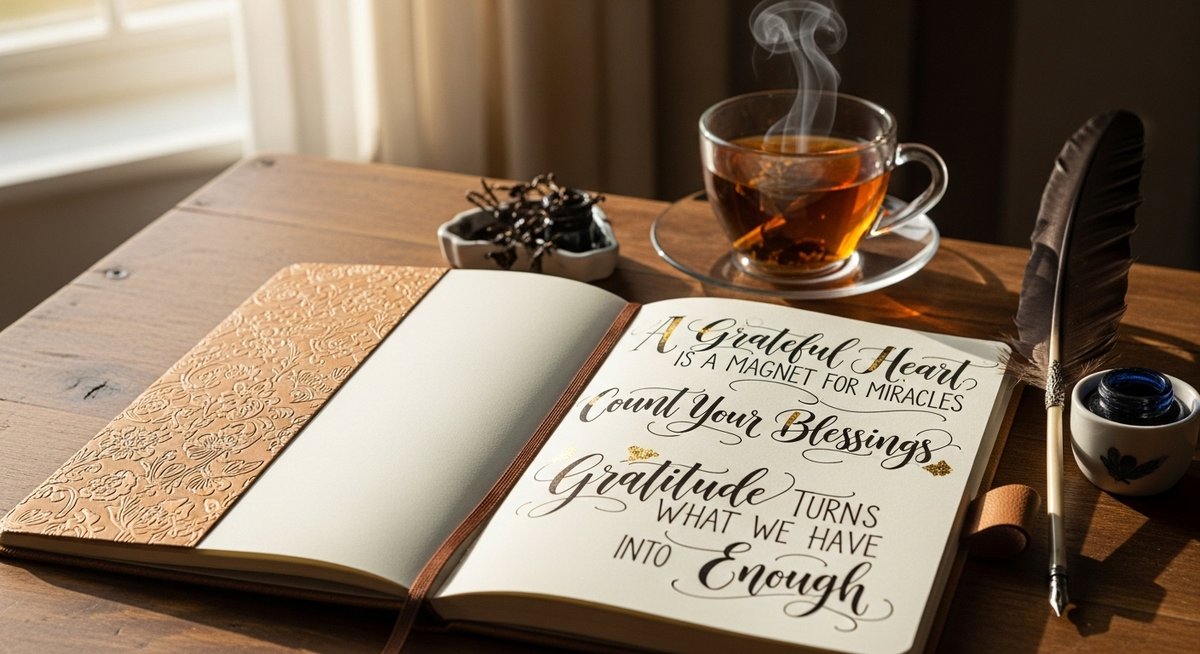 A Grateful Heart
IS A MAGNET FOR MIRACLES
Count Your Blessings
Gratitude TURNS
WHAT WE HAVE
INTO Enough